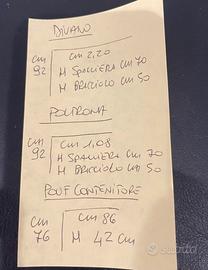 DIVANO
CM 2,20
CM 92
H SPALLIERA CM 70
H BRICCIOLO CM 50
POLTRONA
CM 1,08
CM 92
H SPALLIERA CM 70
H BRICCIOLO CM 50
POUF CONTENITORE
CM 86
CM 76
H 42 CM
subito